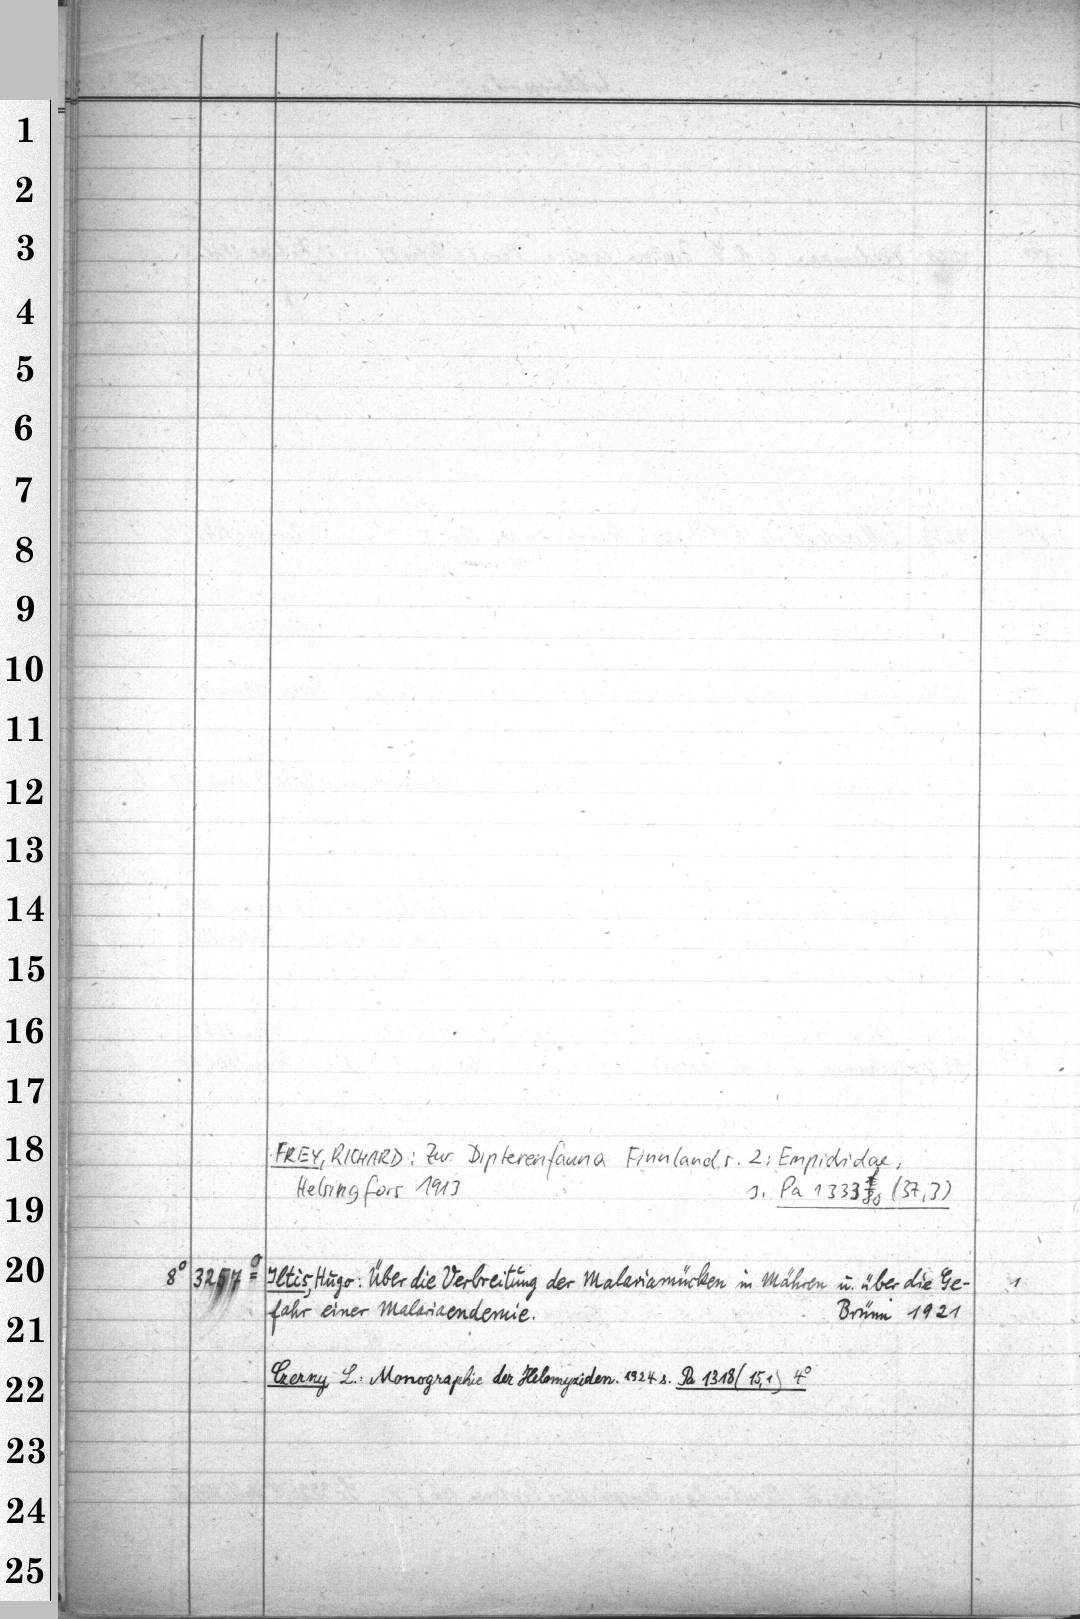 1
2
3
4
5
6
7
8
9
10
11
12
13
14
15
16
17
18
FREY, RICHARD: Zur Dipterenfauna Finnlands. 2: Empididae,
Helsingfors 1913 s. Pa 1333 (37,3)
19
20
8° 3257 Iltis, Hugo: Über die Verbreitung der Malariamücken in Mähren u. über die Ge- 1
fahr einer Malariaendemie. Brünn 1921
21
Czerny L.: Monographie der Helomyziden. 1924 s. Pa 1318 (15,1) 4°
22
23
24
25